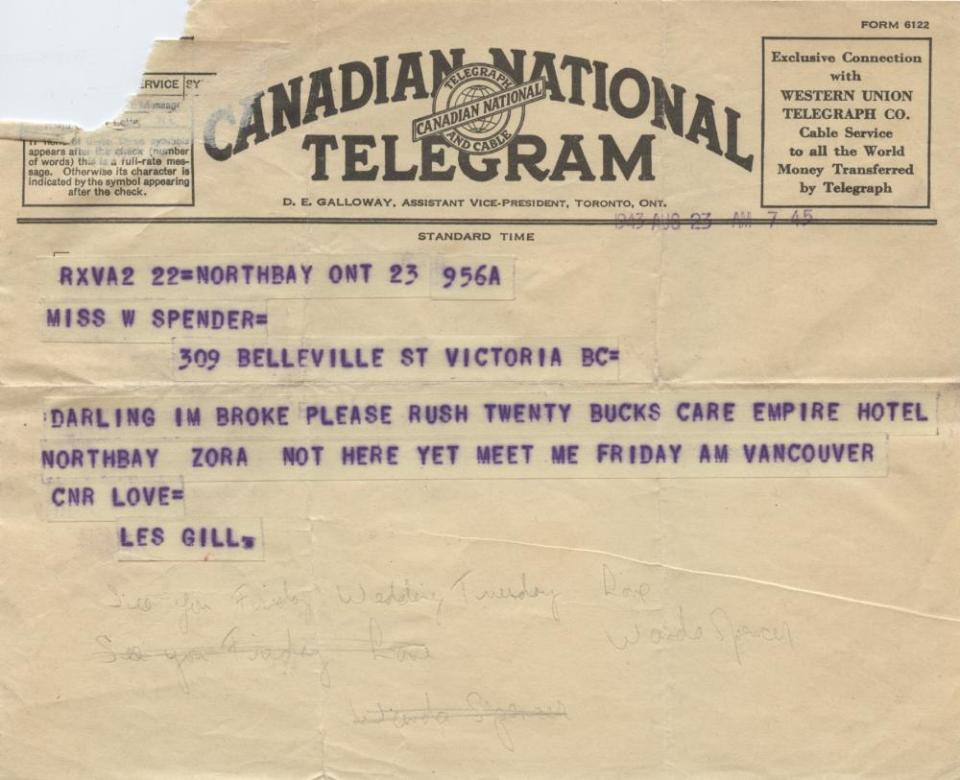 FORM 6122
ERVICE SY
Message
appears after the check (number
of words) this is a full-rate mes-
sage. Otherwise its character is
indicated by the symbol appearing
after the check.
CANADIAN NATIONAL
TELEGRAPH
CANADIAN NATIONAL
AND CABLE
TELEGRAM
D. E. GALLOWAY, ASSISTANT VICE-PRESIDENT, TORONTO, ONT.
Exclusive Connection
with
WESTERN UNION
TELEGRAPH CO.
Cable Service
to all the World
Money Transferred
by Telegraph
1943 AUG 23 AM 7 45
STANDARD TIME
RXVA2 22=NORTHBAY ONT 23 956A
MISS W SPENDER=
309 BELLEVILLE ST VICTORIA BC=
DARLING IM BROKE PLEASE RUSH TWENTY BUCKS CARE EMPIRE HOTEL
NORTHBAY ZORA NOT HERE YET MEET ME FRIDAY AM VANCOUVER
CNR LOVE=
LES GILL
See you Friday Wedding Tuesday Love
See you Friday Love